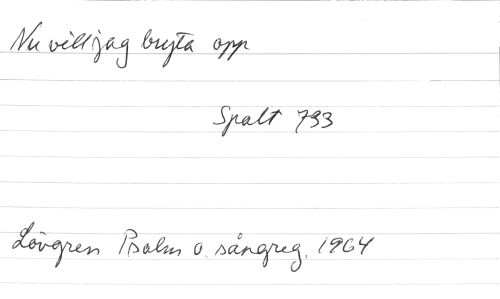 Nu vill jag bryta opp
Spalt 793
Lövgren Psalm o. sångreg. 1964